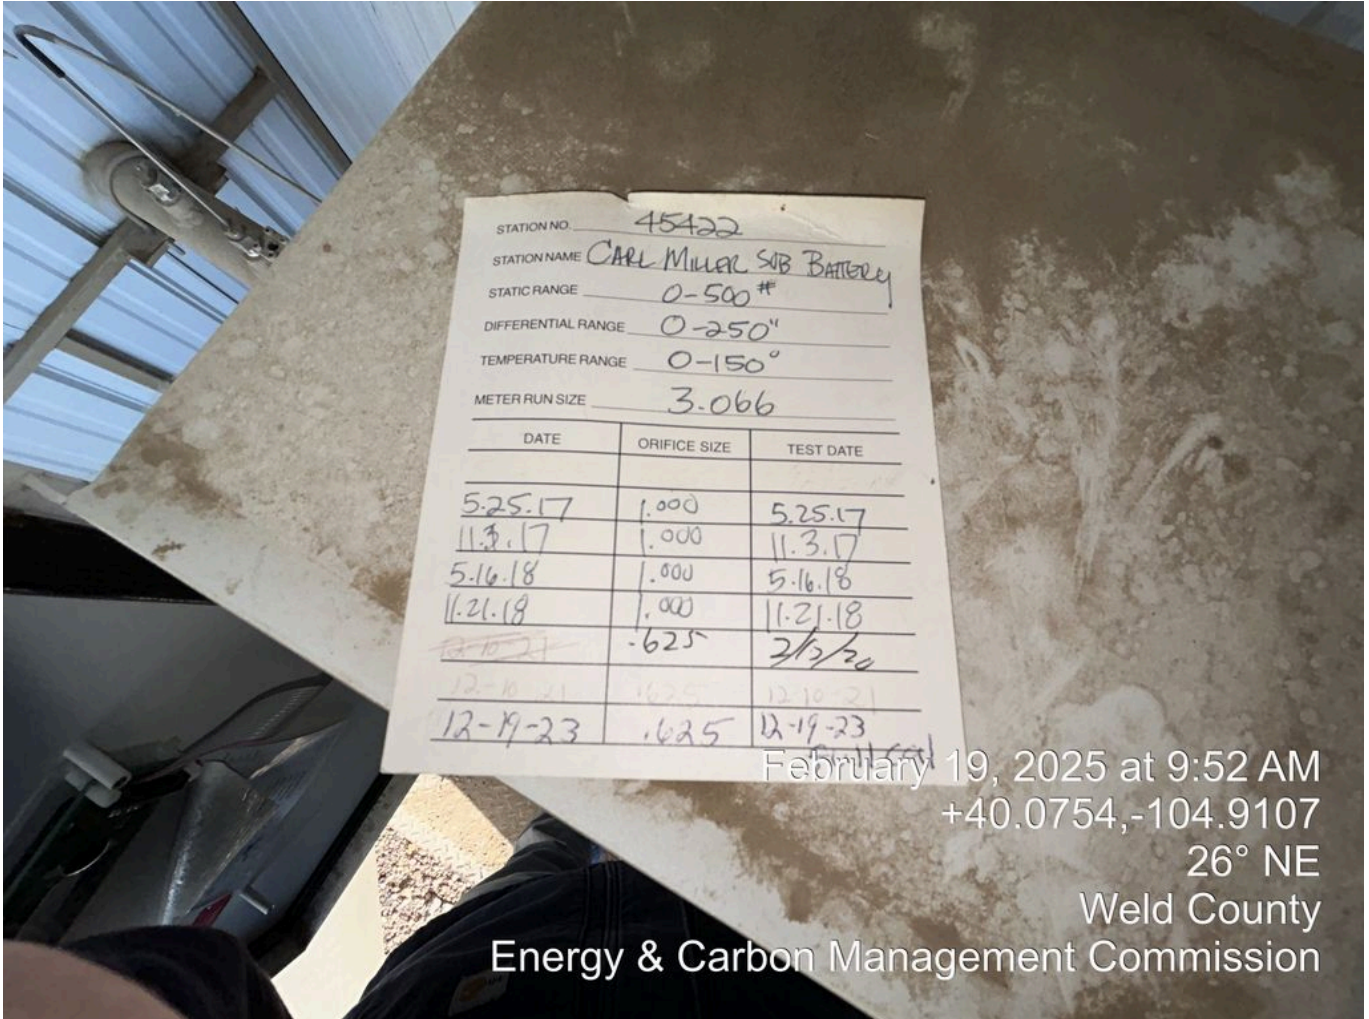 STATION NO. 45422
STATION NAME CARL MILLER SUB BATTERY
STATIC RANGE 0-500#
DIFFERENTIAL RANGE 0-250"
TEMPERATURE RANGE 0-150°
METER RUN SIZE 3.066
DATE ORIFICE SIZE TEST DATE
5.25.17 1.000 5.25.17
11.3.17 1.000 11.3.17
5.16.18 1.000 5.16.18
11.21.18 1.000 11.21.18
12-10-21 .625
12-10-21 .625 12-10-21
12-19-23 .625 12-19-23
February 19, 2025 at 9:52 AM
+40.0754,-104.9107
26° NE
Weld County
Energy & Carbon Management Commission